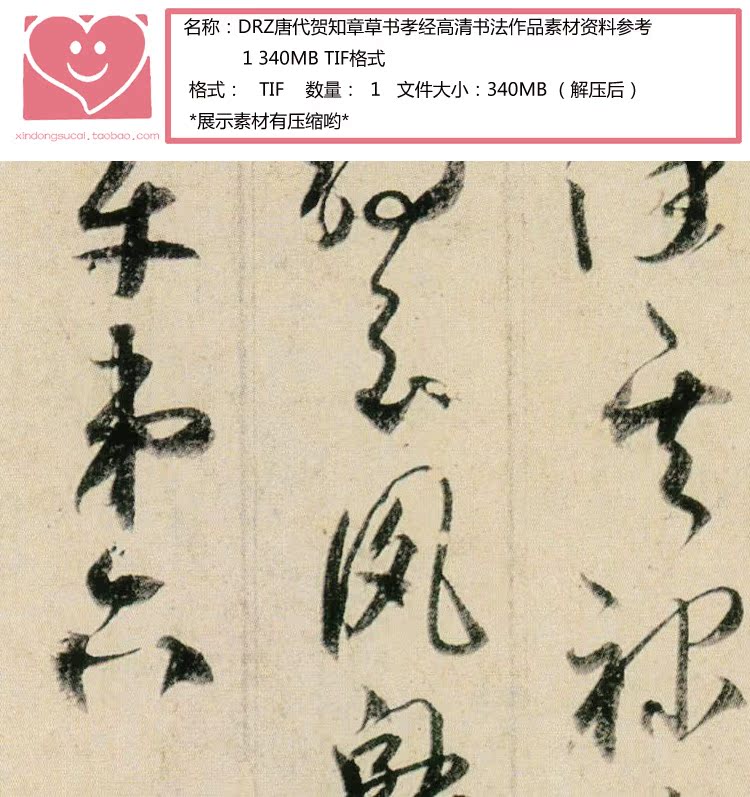 xindongsucai.taobao.com
名称：DRZ唐代贺知章草书孝经高清书法作品素材资料参考
1 340MB TIF格式
格式： TIF 数量： 1 文件大小：340MB（解压后）
*展示素材有压缩哟*
其祿
云夙興
章第六